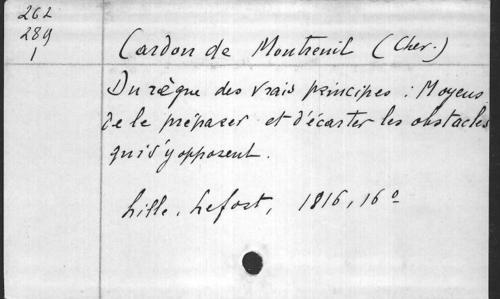 262
289
1
Cardon de Montreuil (Cher.)
Du règne des vrais principes : Moyens
de le préparer et d'écarter les obstacles
qui s'y opposent.
Lille, Lefort, 1816, 16º